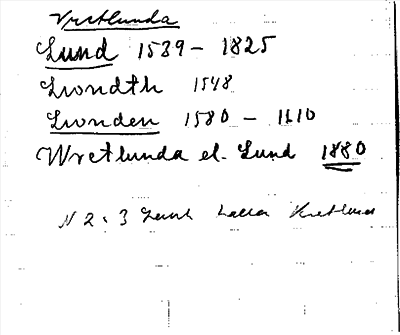 Vretlunda
Lund 1539 - 1825
Lwondth 1548
Lwonden 1580 - 1610
Wretlunda el. Lund 1880
N 2 o 3 Lund kallas Vretlund